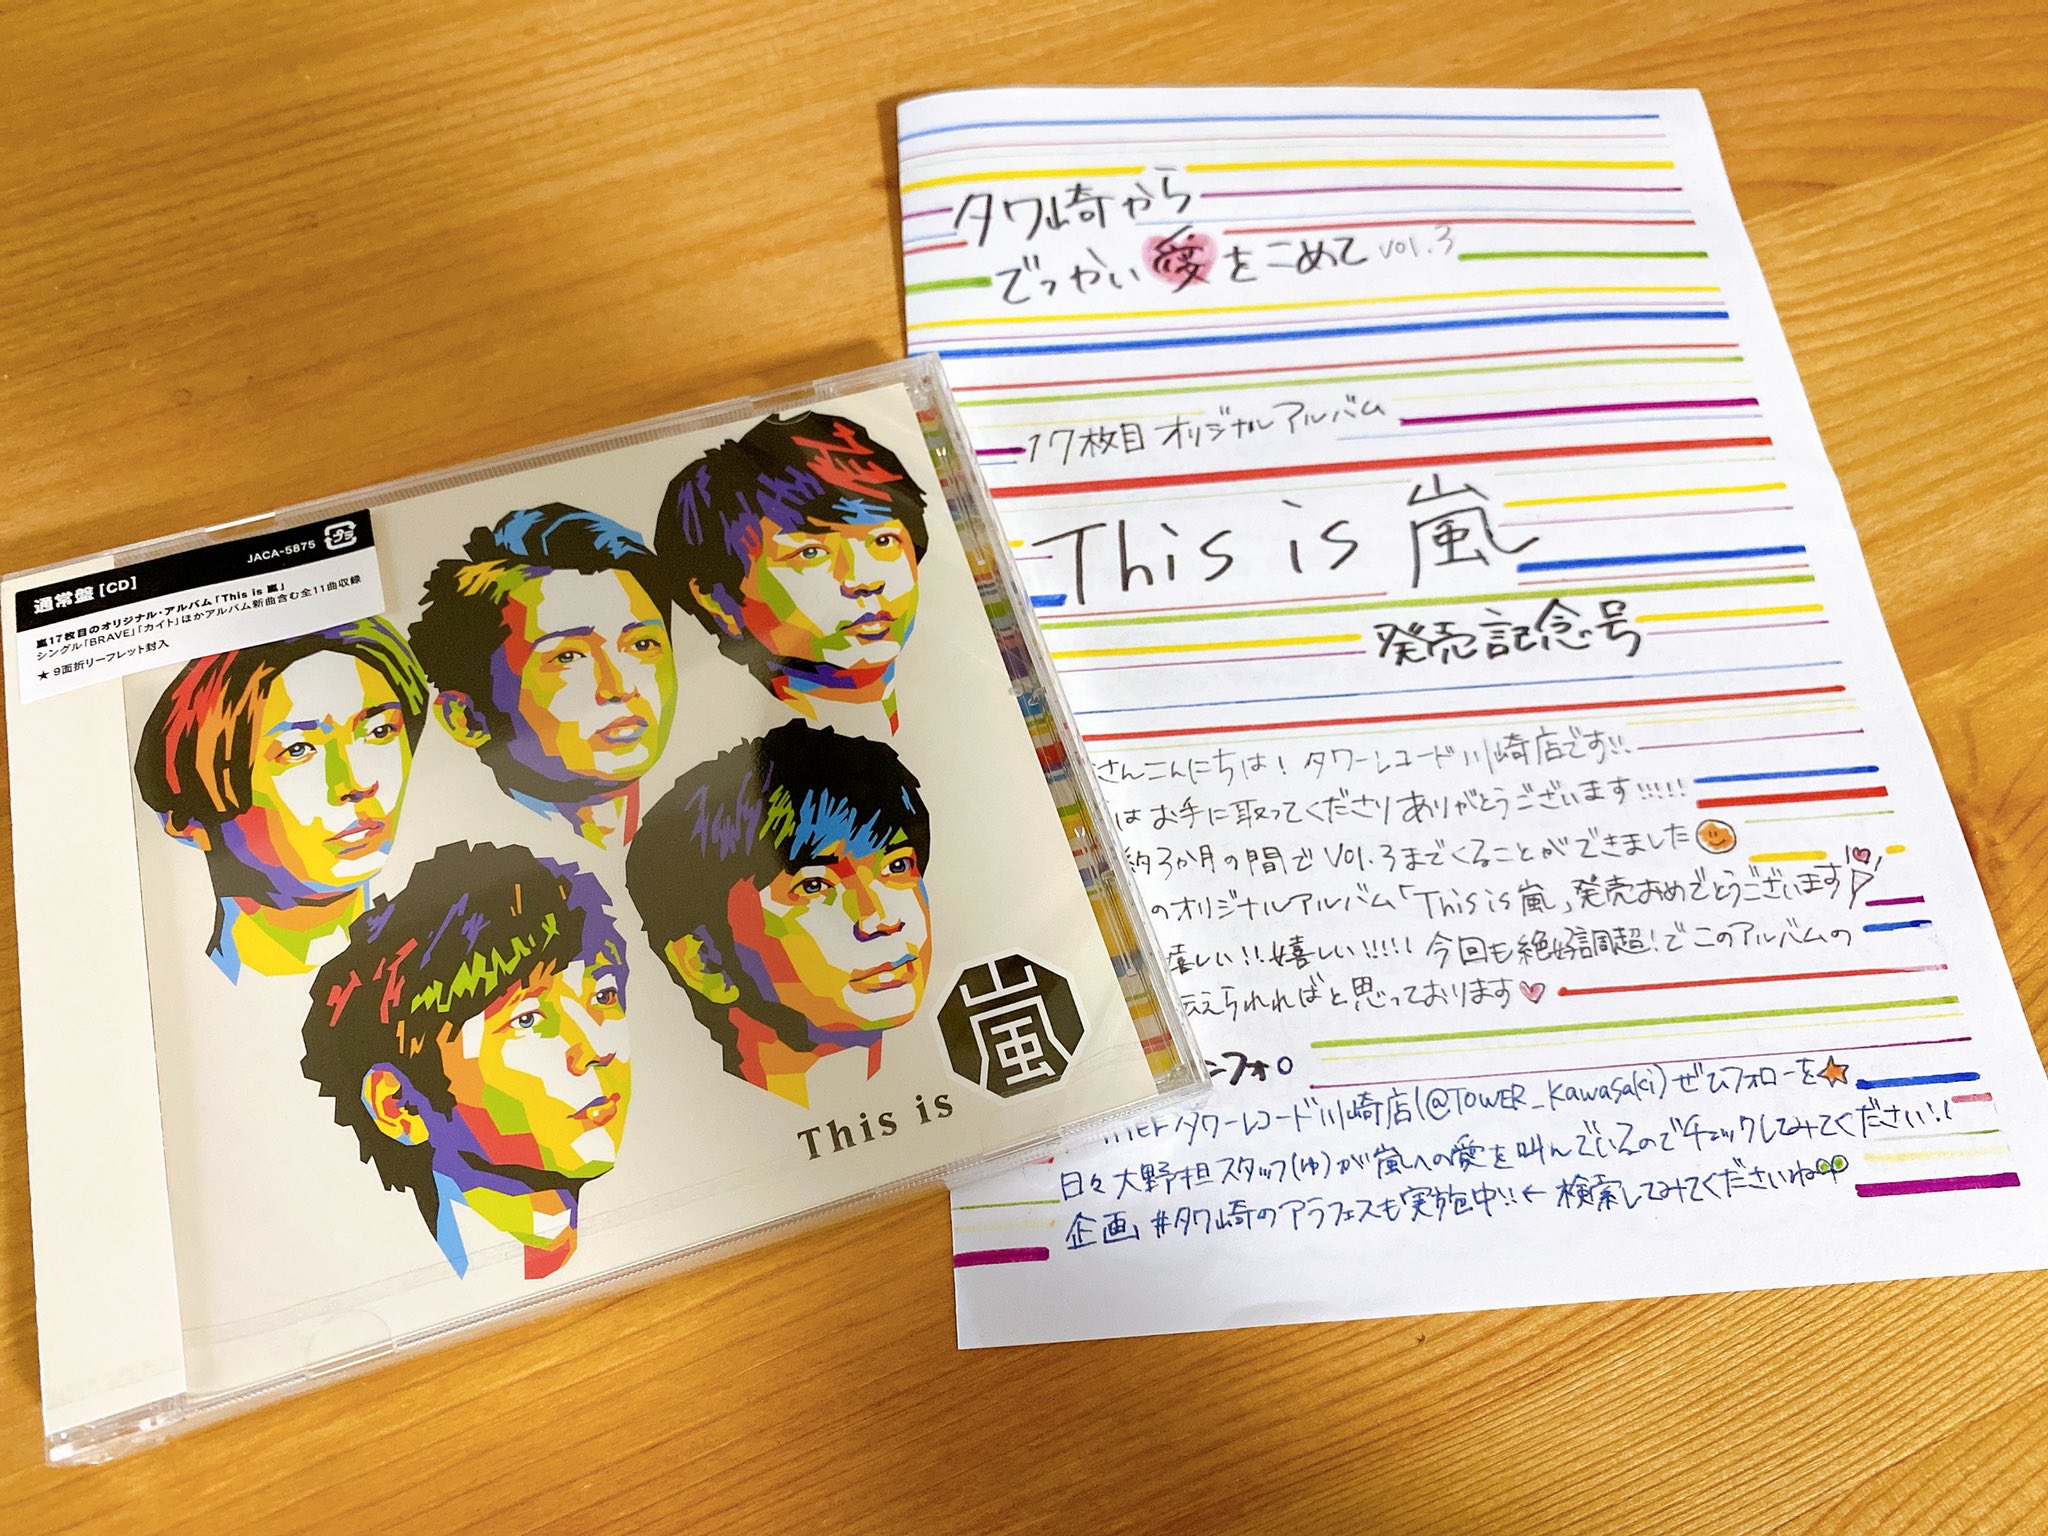 通常盤[CD]
JACA-5875
プラ
嵐17枚目のオリジナル・アルバム「This is 嵐」
シングル「BRAVE」「カイト」ほかアルバム新曲含む全11曲収録
★9面折リーフレット封入
This is 嵐
タワ崎から
でっかい愛をこめて vol.3
17枚目オリジナルアルバム
This is 嵐
発売記念号
さんこんにちは！タワーレコード川崎店です!!
はお手に取ってくださりありがとうございます!!!!!
約3か月の間でVol.3までくることができました
のオリジナルアルバム「This is 嵐」発売おめでとうございます
嬉しい!!嬉しい!!!!!今回も絶好調超！でこのアルバムの
伝えられればと思っております♡
ンフォ。
タワーレコード川崎店(@TOWER_Kawasaki)ぜひフォローを
日々大野担スタッフ(ゆ)が嵐への愛を叫んでいるのでチェックしてみてください!!
企画#タワ崎のアラフェスも実施中!!←検索してみてくださいね